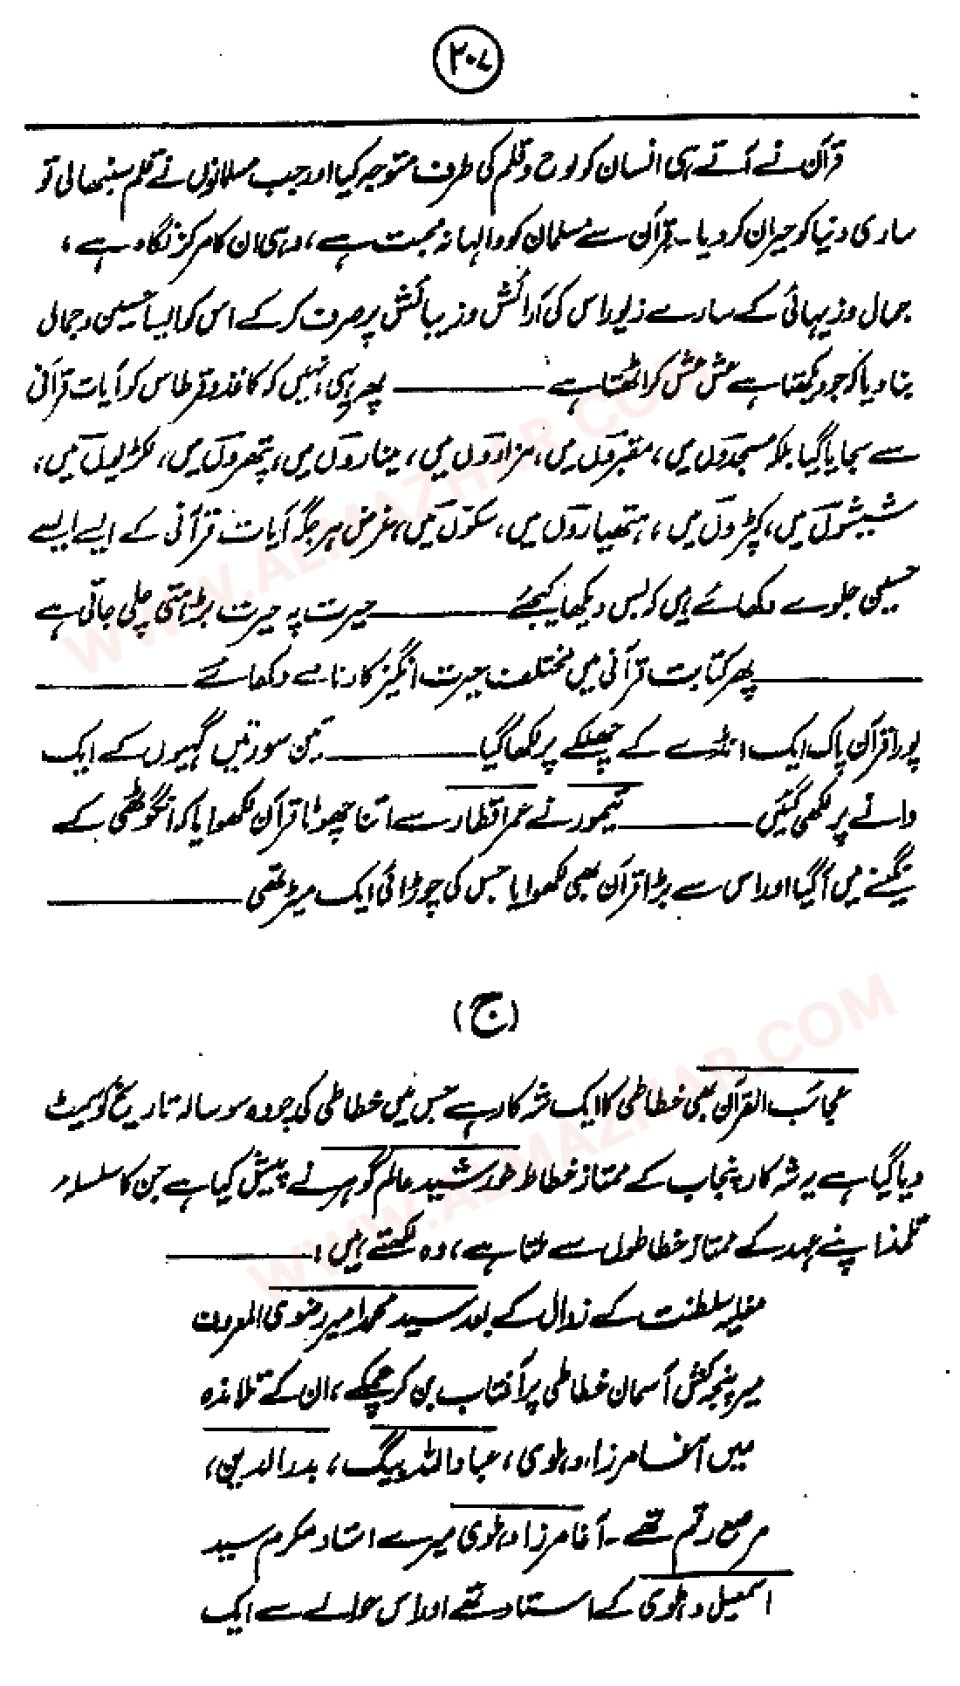 ۲۰۷
قرآن نے آتے ہی انسان کو لوح و قلم کی طرف متوجہ کیا اور جب مسلمانوں نے قلم سنبھالی تو
ساری دنیا کو حیران کر دیا۔ قرآن سے مسلمان کو والہانہ محبت ہے، وہی ان کا مرکز نگاہ ہے،
جمال و زیبائی کے سارے زیور اس کی آرائش و زیبائش پر صرف کر کے اس کو ایسا حسین و جمال
بنا دیا کہ جو دیکھتا ہے عش عش کر اٹھتا ہے ——— پھر یہی نہیں کہ کاغذ و قرطاس کو آیات قرآنی
سے سجایا گیا بلکہ مسجدوں میں، مقبروں میں، مزاروں میں، میناروں میں، پتھروں میں، لکڑیوں میں،
شیشوں میں، کپڑوں میں، ہتھیاروں میں، سکوں میں، غرض ہر جگہ آیات قرآنی کے ایسے ایسے
حسین جلوے دکھائے ہیں کہ بس دیکھا کیجئے ——— حیرت پہ حیرت بڑھتی چلی جاتی ہے
——— پھر کتابت قرآنی میں مختلف حیرت انگیز کارنامے دکھائے ———
پورا قرآن پاک ایک انڈے کے چھلکے پر لکھا گیا ——— تین سورتیں گیہوں کے ایک
دانے پر لکھی گئیں ——— تیمور نے عمر اقطار سے اتنا چھوٹا قرآن لکھوایا کہ انگوٹھی کے
نگینے میں آ گیا اور اس سے بڑا قرآن بھی لکھوایا جس کی چوڑائی ایک میٹر تھی ———
(ج)
عجائب القرآن بھی خطاطی کا ایک شہ کار ہے جس میں خطاطی کی چودہ سو سالہ تاریخ کو سمیٹ
دیا گیا ہے یہ شہ کار پنجاب کے ممتاز خطاط خورشید عالم گوہر نے پیش کیا ہے جن کا سلسلہ
تلمذ اپنے عہد کے ممتاز خطاطوں سے ملتا ہے، وہ لکھتے ہیں: ———
مغلیہ سلطنت کے زوال کے بعد سید محمد امیر رضوی المعروف
میر پنجہ کش آسمان خطاطی پر آفتاب بن کر چمکے، ان کے تلامذہ
میں آغا مرزا دہلوی، عباد اللہ بیگ، بدر الدین،
مرصع رقم تھے۔ آغا مرزا دہلوی میرے استاد مکرم سید
اسمٰعیل دہلوی کے استاد تھے اور اس حوالے سے ایک
WWW.ALMAZHAR.COM
WWW.ALMAZHAR.COM